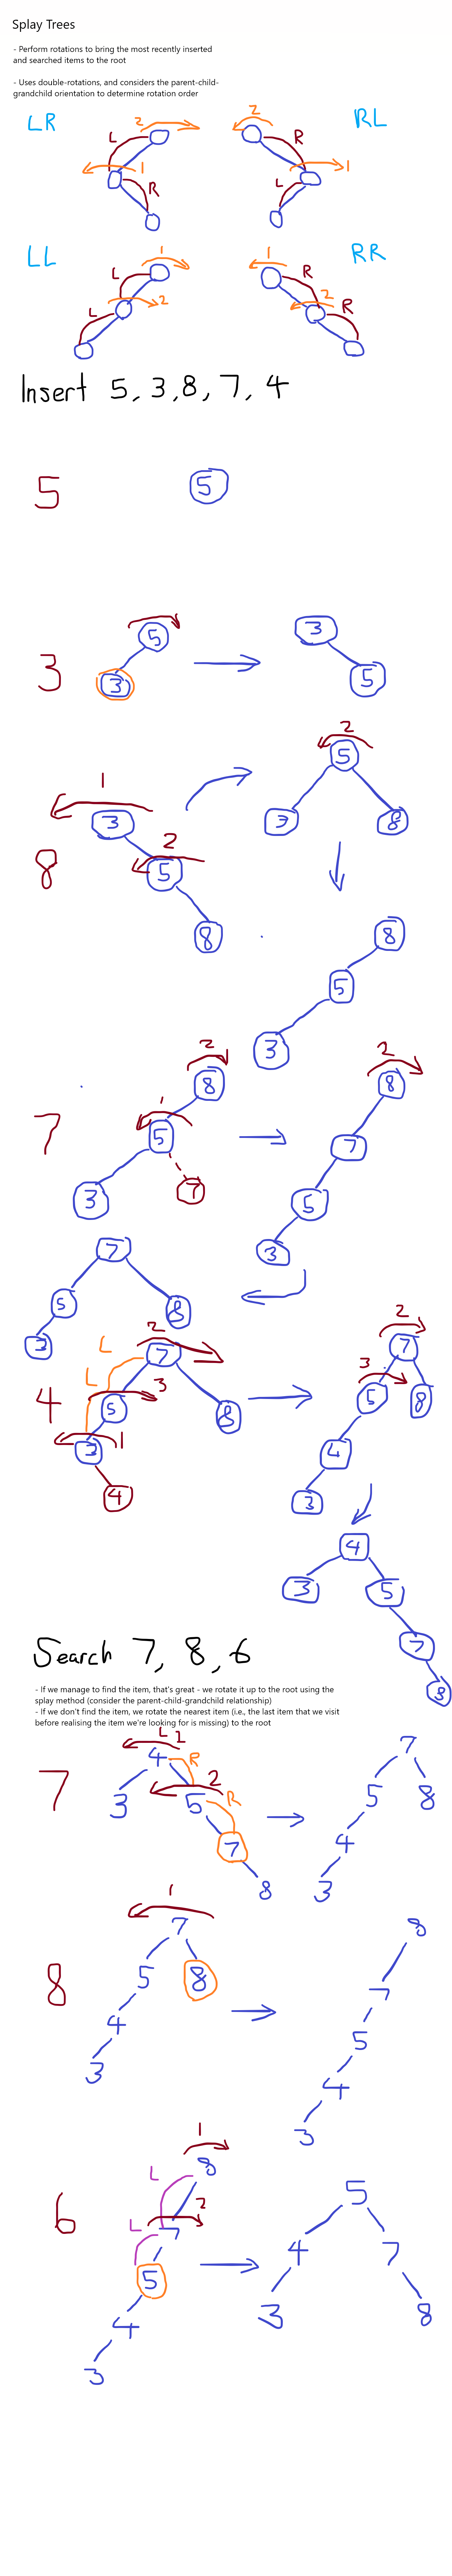 Splay Trees
- Perform rotations to bring the most recently inserted
and searched items to the root
- Uses double-rotations, and considers the parent-child-
grandchild orientation to determine rotation order
LR
L
2
1
R
2
R
L
1
RL
LL
L
1
L
2
1
R
2
R
RR
Insert 5, 3, 8, 7, 4
5
5
3
5
3
3
5
8
1
3
2
5
8
2
5
3
8
8
5
3
7
2
8
1
5
3
7
2
8
7
5
3
7
5
8
3
4
L
L
2
7
3
5
8
1
3
4
2
7
3
5
8
4
3
4
3
5
7
8
Search 7, 8, 6
- If we manage to find the item, that's great - we rotate it up to the root using the
splay method (consider the parent-child-grandchild relationship)
- If we don't find the item, we rotate the nearest item (i.e., the last item that we visit
before realising the item we're looking for is missing) to the root
7
1
4
R
3
5
2
R
7
8
7
5
8
4
3
8
1
7
5
8
4
3
8
7
5
4
3
6
1
L
8
L
2
7
5
4
3
5
4
7
3
8